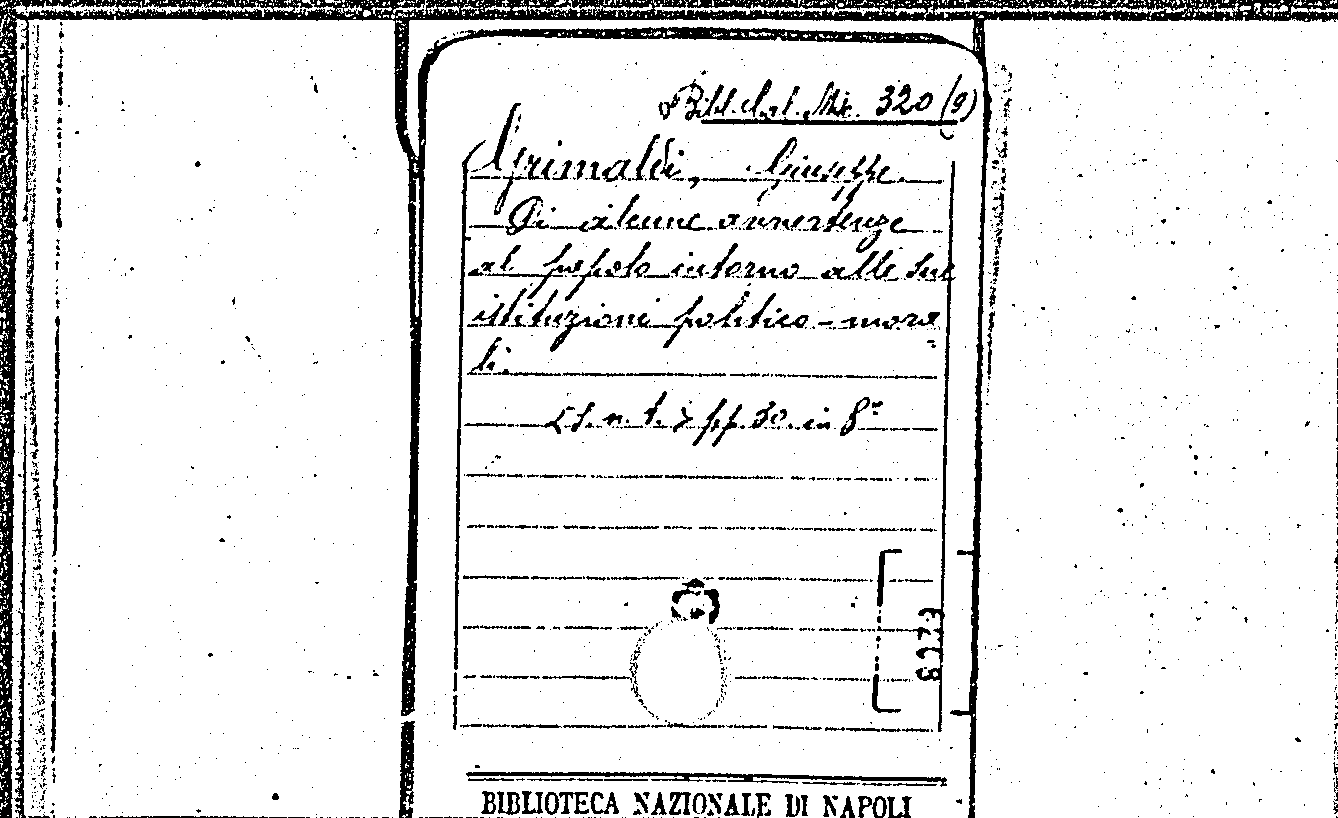 Bibl. Mis. 320 (9)
Grimaldi, Giuseppe.
Di alcune avvertenze
al popolo intorno alle sue
istituzioni politico-mora
li.
<s. n. t.> pp. 30. in 8º
BIBLIOTECA NAZIONALE DI NAPOLI